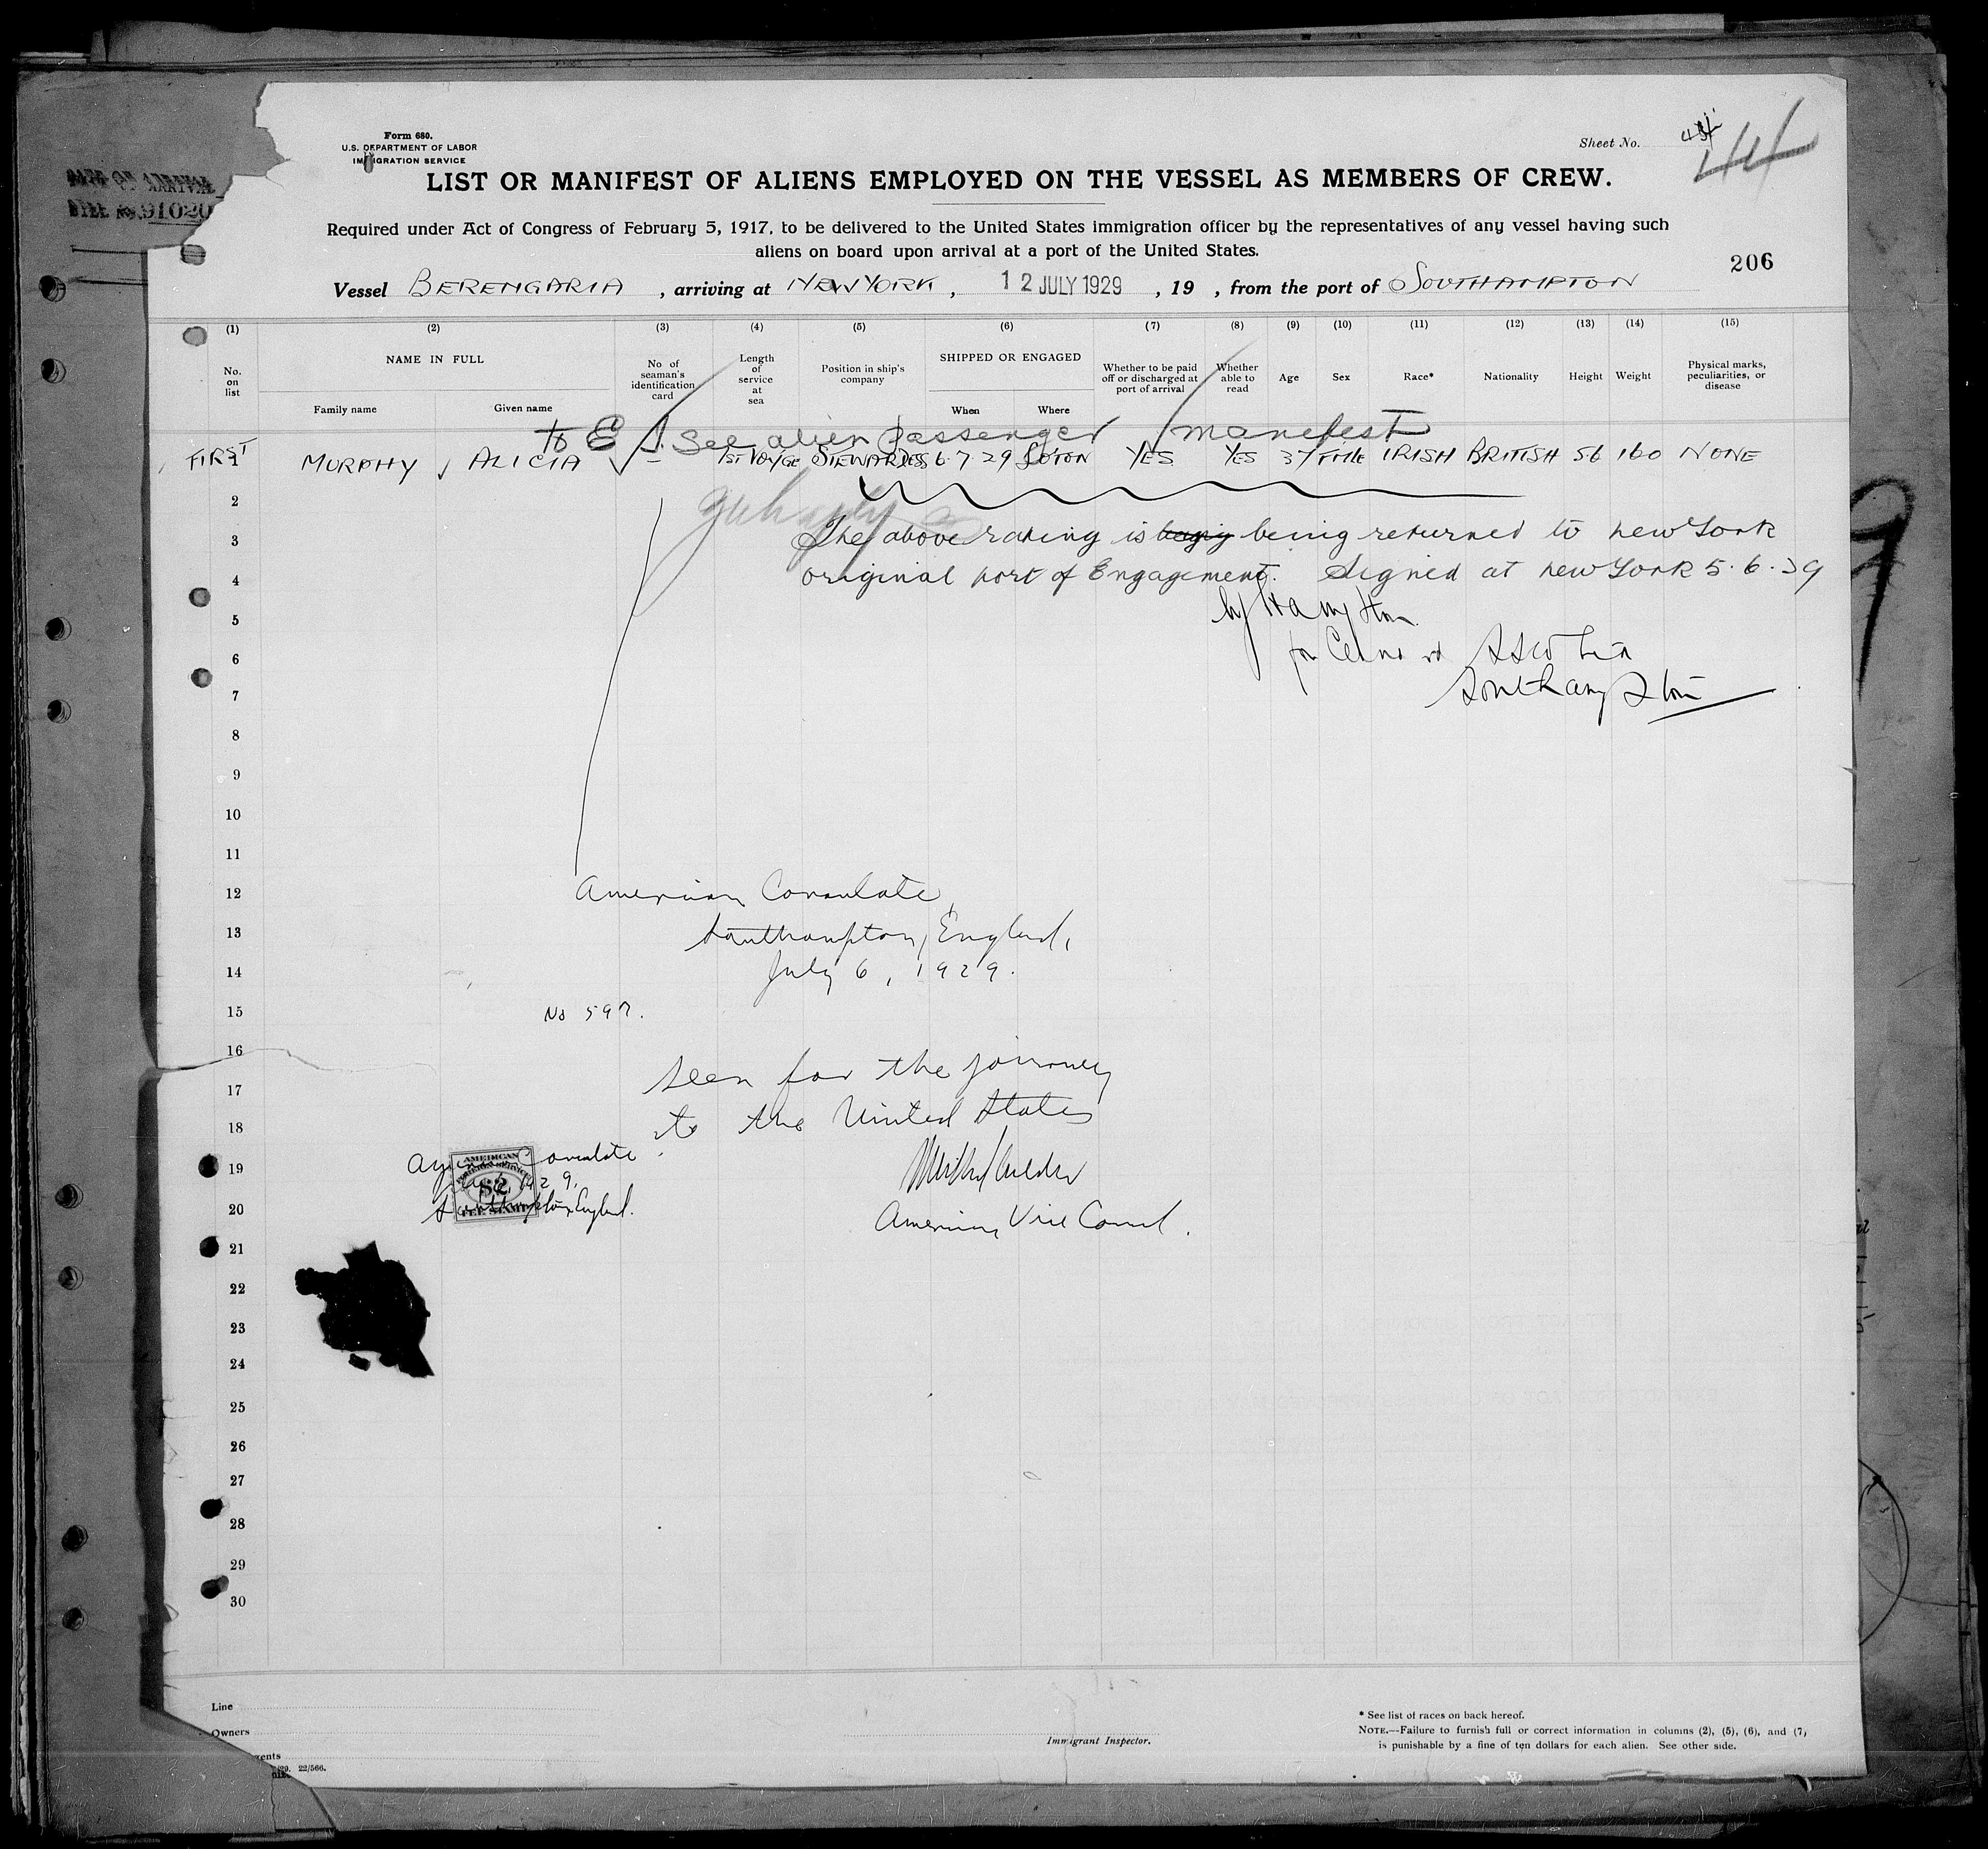 Form 680.
U.S. DEPARTMENT OF LABOR
IMMIGRATION SERVICE
Sheet No. 44
LIST OR MANIFEST OF ALIENS EMPLOYED ON THE VESSEL AS MEMBERS OF CREW.
Required under Act of Congress of February 5, 1917, to be delivered to the United States immigration officer by the representatives of any vessel having such
aliens on board upon arrival at a port of the United States.
206
Vessel BERENGARIA , arriving at NEW YORK , 12 JULY 1929 , 19 , from the port of SOUTHAMPTON
(1) (2) (3) (4) (5) (6) (7) (8) (9) (10) (11) (12) (13) (14) (15)
No. on list
NAME IN FULL
Family name
Given name
No of seaman's identification card
Length of service at sea
Position in ship's company
SHIPPED OR ENGAGED
When
Where
Whether to be paid off or discharged at port of arrival
Whether able to read
Age
Sex
Race*
Nationality
Height
Weight
Physical marks, peculiarities, or disease
See alien passenger manifest
FIRST
1 MURPHY ALICIA – 1ST VOYGE STEWARDESS 6.7.29 SOTON YES YES 37 FMLE IRISH BRITISH 56 160 NONE
2
3 The above rating is being returned to new York
4 original port of Engagement. Signed at new York 5.6.29
5
6
7 Southampton
8
9
10
11
12 American Consulate,
13 Southampton, England,
14 July 6, 1929.
15 No 597.
16
17 Seen for the journey
18 to the United States
19 Consulate
20 Southampton, England.
AMERICAN
$2
FEE STAMP
American Vice Consul.
21
22
23
24
25
26
27
28
29
30
Line
Owners
Immigrant Inspector.
* See list of races on back hereof.
NOTE.—Failure to furnish full or correct information in columns (2), (5), (6), and (7)
is punishable by a fine of ten dollars for each alien. See other side.
22/566.